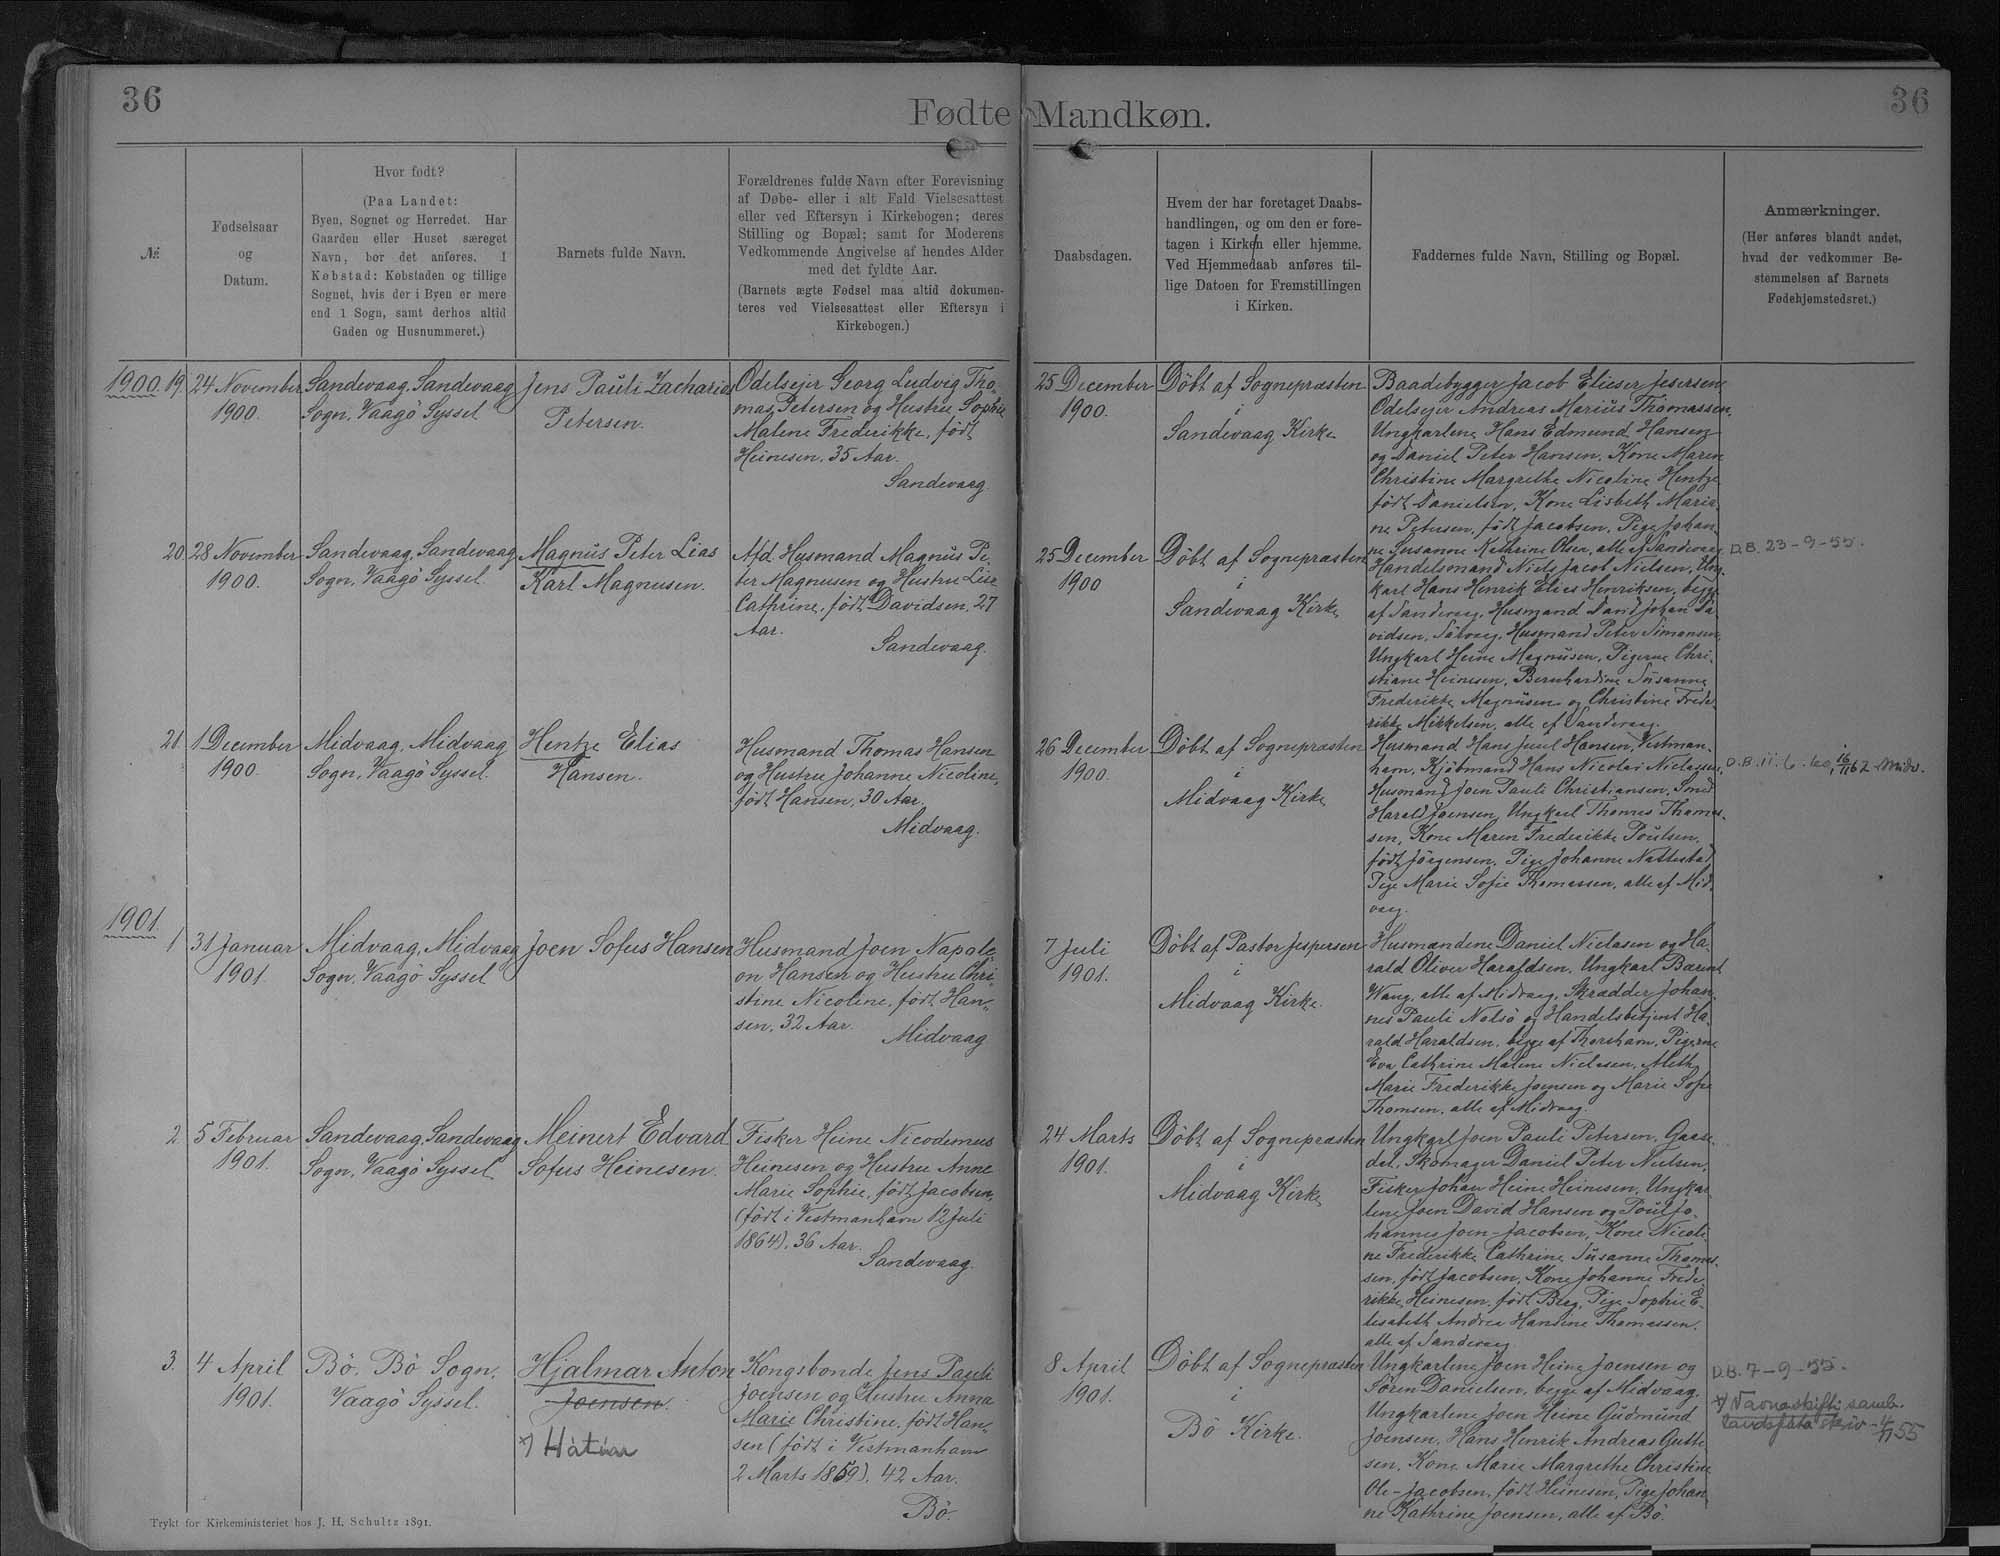 36
Fødte Mandkøn.
36
№
Fødselsaar
og
Datum.
Hvor født?
(Paa Landet:
Byen, Sognet og Herredet. Har
Gaarden eller Huset særeget
Navn, bør det anføres. I
Købstad: Købstaden og tillige
Sognet, hvis der i Byen er mere
end 1 Sogn, samt derhos altid
Gaden og Husnummeret.)
Barnets fulde Navn.
Forældrenes fulde Navn efter Forevisning
af Døbe- eller i alt Fald Vielsesattest
eller ved Eftersyn i Kirkebogen; deres
Stilling og Bopæl; samt for Moderens
Vedkommende Angivelse af hendes Alder
med det fyldte Aar.
(Barnets ægte Fødsel maa altid dokumen-
teres ved Vielsesattest eller Eftersyn i
Kirkebogen.)
Daabsdagen.
Hvem der har foretaget Daabs-
handlingen, og om den er fore-
tagen i Kirken eller hjemme.
Ved Hjemmedaab anføres til-
lige Datoen for Fremstillingen
i Kirken.
Faddernes fulde Navn, Stilling og Bopæl.
Anmærkninger.
(Her anføres blandt andet,
hvad der vedkommer Be-
stemmelsen af Barnets
Fødehjemstedsret.)
1900. 19.
24 November
1900.
Sandevaag, Sandevaag
Sogn, Vaagö Syssel
Jens Pauli Zacharias
Petersen.
Odelsejer Georg Ludvig Tho-
mas Petersen og Hustru Sophie
Malene Frederikke, født
Heinesen, 35 Aar.
Sandevaag
25 December
1900.
Döbt af Sognepræsten
i
Sandevaag Kirke
Baadebygger Jacob Elieser Jesersen
Odelsejer Andreas Marius Thomassen,
Ungkarlene Hans Edmund Hansen
og Daniel Peter Hansen, Kone Maren
Christine Margrethe Nicoline Hentze
født Danielsen, Kone Lisbeth Maria-
ne Petersen, født Jacobsen, Pige Johan-
ne Susanne Kathrine Olsen, alle af Sandevaag
20.
28 November
1900.
Sandevaag, Sandevaag
Sogn, Vaagö Syssel.
Magnus Peter Lias
Karl Magnusen.
Afd. Husmand Magnus Pe-
ter Magnusen og Hustru Lise
Cathrine, født Davidsen, 27
Aar.
Sandevaag.
25 December
1900
Döbt af Sognepræsten
i
Sandevaag Kirke
Handelsmand Niels Jacob Nielsen, Ung-
karl Hans Henrik Elias Henriksen, begge
af Sandevaag, Husmand Johan Da-
vidsen, Husmand Peter Simonsen,
Ungkarl Heine Magnusen, Pigerne Chri-
stiane Heinesen, Bernhardine Susanne
Frederikke Magnusen og Christine Frede-
rikke Mikkelsen, alle af Sandevaag.
D.B. 23-9-55.
21.
1 December
1900.
Midvaag, Midvaag
Sogn, Vaagö Syssel.
Hentze Elias
Hansen.
Husmand Thomas Hansen
og Hustru Johanne Nicoline,
født Hansen, 30 Aar.
Midvaag.
26 December
1900.
Döbt af Sognepræsten
i
Midvaag Kirke
Husmand Hans Juul Hansen, Vestman-
havn, Kjöbmand Hans Nicolai Niclasen,
Husmand Joen Pauli Christiansen, Smed
Harald Joensen, Ungkarl Thomas Thomas-
sen, Kone Maren Frederikke Poulsen,
født Jörgensen, Pige Johanne Nattestad
Pige Marie Sofie Thomassen, alle af Mid-
vaag.
D.B. 11.6.60, 16/11 62 Midv.
1901.
1
31 Januar
1901.
Midvaag, Midvaag
Sogn, Vaagö Syssel
Joen Sofus Hansen
Husmand Joen Napole-
on Hansen og Hustru Chri-
stine Nicoline, født Han-
sen, 32 Aar.
Midvaag
7 Juli
1901.
Döbt af Pastor Jespersen
i
Midvaag Kirke.
Husmændene Daniel Niclasen og Ha-
rald Oliver Haraldsen, Ungkarl Barent
Waag, alle af Midvaag, Skrædder Johan-
nes Pauli Nolsö og Handelsbetjent Ha-
rald Haraldsen, begge af Thorshavn, Pigerne
Eva Cathrine Malene Niclasen, Meth
Marie Frederikke Joensen og Marie Sofie
Thomsen, alle af Midvaag.
2.
5 Februar
1901.
Sandevaag, Sandevaag
Sogn, Vaagö Syssel
Meinert Edvard
Sofus Heinesen.
Fisker Heine Nicodemus
Heinesen og Hustru Anne
Marie Sophie, født Jacobsen,
(født i Vestmanhavn 12 Juli
1864), 36 Aar.
Sandevaag.
24 Marts
1901.
Döbt af Sognepræsten
i
Midvaag Kirke
Ungkarl Joen Pauli Petersen, Gaase-
dal, Skomager Daniel Peter Nielsen,
Fisker Johan Heine Heinesen, Ungkar-
lene Joen David Hansen og Poul Jo-
hannes Joen-Jacobsen, Kone Nicoli-
ne Frederikke Cathrine Susanne Thomas-
sen, født Jacobsen, Kone Johanne Frede-
rikke Heinesen, født Berg, Pige Sophie E-
lisabeth Andrea Hansine Thomassen,
alle af Sandevaag
3.
4 April
1901.
Bö, Bö Sogn,
Vaagö Syssel.
Hjalmar Anton
Joensen.
x) Hátún
Kongsbonde Jens Pauli
Joensen og Hustru Anna
Marie Christine, født Han-
sen (født i Vestmanhavn
2 Marts 1859), 42 Aar.
Bö.
8 April
1901.
Döbt af Sognepræsten
i
Bö Kirke.
Ungkarlene Joen Heine Joensen og
Sören Danielsen, begge af Midvaag,
Ungkarlene Joen Heine Gudmund
Joensen, Hans Henrik Andreas Gutte-
sen, Kone Marie Margrethe Christine
Ole-Jacobsen, født Heinesen, Pige Johan-
ne Kathrine Joensen, alle af Bö.
D.B. 7-9-55.
x) Navnaskifti samb.
landsfúta skriv - 4/11 55
Trykt for Kirkeministeriet hos J. H. Schultz 1891.